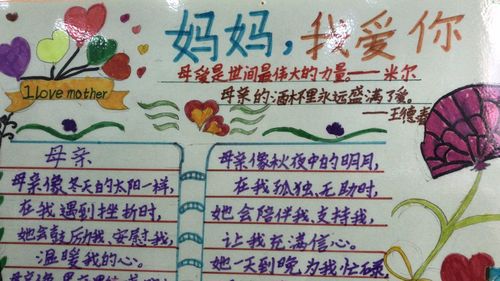 妈妈，我爱你
母爱是世间最伟大的力量——米尔
I love mother
母亲的酒杯里永远盛满了爱。
——王德
母亲
母亲像冬天的太阳一样，
在我遇到挫折时，
她会鼓励我、安慰我，
温暖我的心。
母亲像秋夜中的明月，
在我孤独、无助时，
她会陪伴我、支持我，
让我充满信心。
她一天到晚，为我忙碌